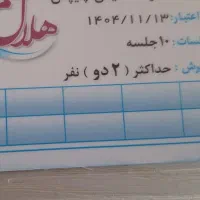 اعتبار: ۱۴۰۴/۱۱/۱۳
جلسات: ۱۰ جلسه
حداکثر ( ۲ دو ) نفر
هلال